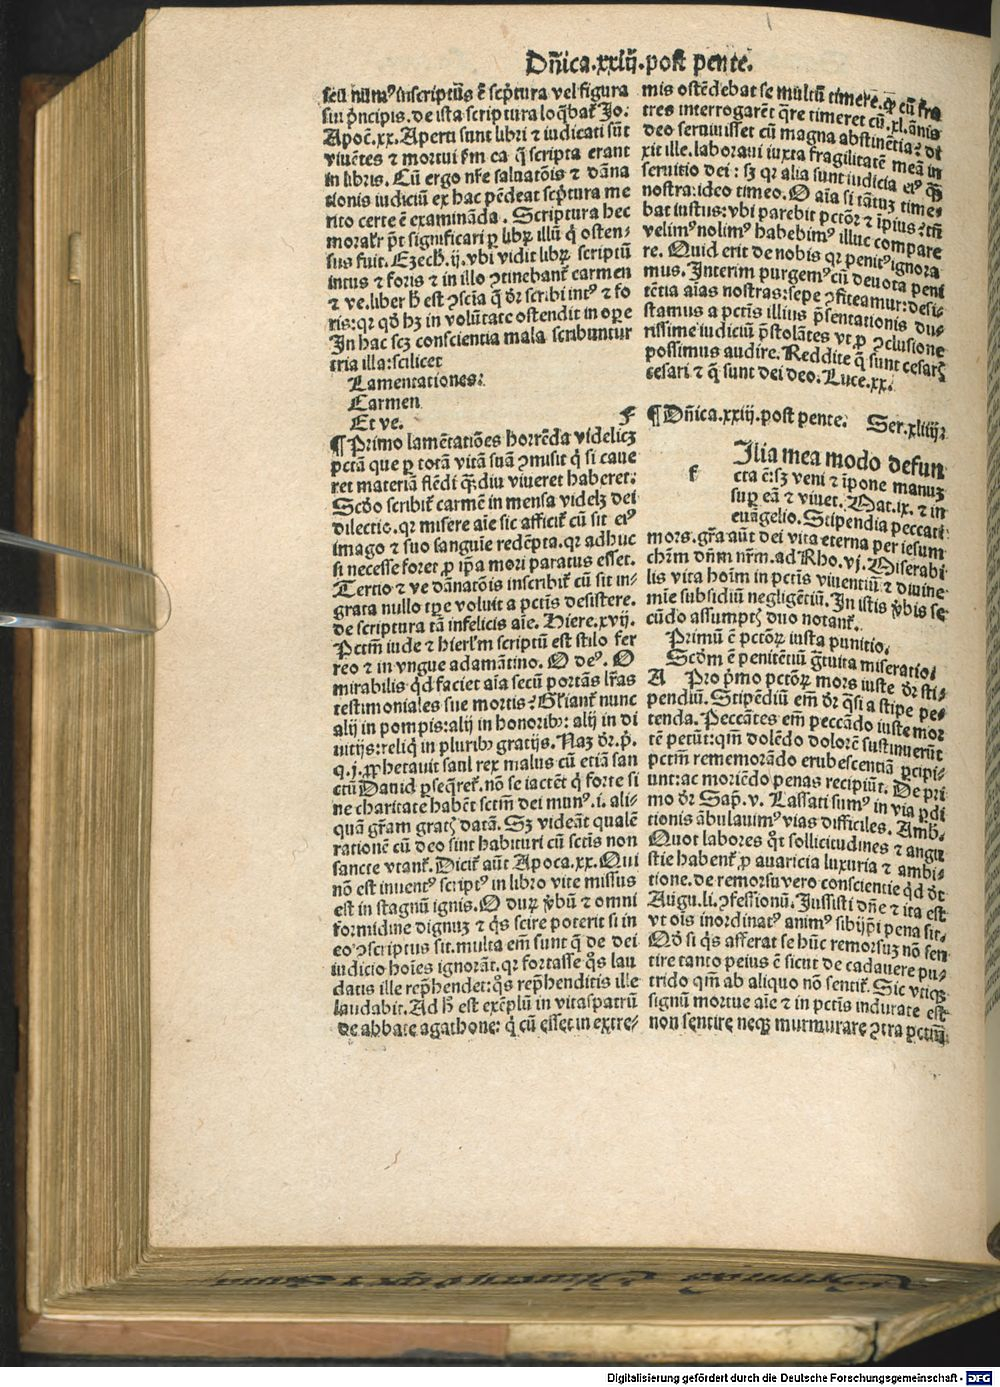 Dñica.xxiij.post pente.
seu num⁹ inscriptũs ẽ scp̃tura vel figura
sui p̃ncipis. de ista scriptura loq̃bat᷑ Jo.
Apoc̃.xx. Aperti sunt libri ⁊ iudicati sũt
viuẽtes ⁊ mortui ẜm ea q̃ scripta erant
in libris. Cũ ergo nr̃e saluatõis ⁊ dãna
tionis iudiciũ ex hac pẽdeat scp̃tura me
rito certe ẽ examinãda. Scriptura hec
moralr̃ p̃t significari ꝑ libꝝ illũ q̃ osten-
sus fuit. Ezech̃.ij. vbi vidit libꝝ scriptũ
intus ⁊ foris ⁊ in illo ꝯtinebant᷑ carmen
⁊ ve. liber h̃ est ꝯscĩa q̃ dr̃ scribi int⁹ ⁊ fo
ris: qꝛ qd̃ hꝫ in volũtate ostendit in oꝑe
In hac scꝫ conscientia mala scribuntur
tria illa: scilicet
Lamentationes:
Carmen
Et ve.
¶ Primo lamẽtatiões horrẽda videlicꝫ
pctã que ꝑ totã vitã suã ꝯmisit q̃ si caue
ret materiã flẽdi q̃ꝫdiu viueret haberet:
Scd̃o scribit᷑ carmẽ in mensa videlꝫ dei
dilectio. qꝛ misere aĩe sic afficit᷑ cũ sit ei⁹
imago ⁊ suo sanguĩe redẽpta. qꝛ adhuc
si necesse foret ꝓ ip̃a mori paratus esset.
Tertio ⁊ ve dãnatõis inscribit᷑ cũ sit in-
grata nullo tp̃e voluit a pctĩs desistere.
de scriptura tã infelicis aĩe. Hiere.xvij.
Pctm̃ iude ⁊ hierl̃m scriptũ est stilo fer
reo ⁊ in vngue adamãtino. O de⁹. O
mirabilis q̃d faciet aĩa secũ portãs lr̃as
testimoniales sue mortis? Gl̃iant᷑ nunc
alij in pompis: alij in honorib⁹: alij in di
uitijs: reliq̃ in plurib⁹ gratijs. Naꝫ dr̃.p̃.
q.j. ꝓphetauit saul rex malus cũ etiã san
ctũ Dauid ꝑseq̃ret᷑. nõ se iactẽt q̃ forte si
ne charitate habẽt sctm̃ dei mun⁹.i. ali-
quã gr̃am gratꝫ datã. Sꝫ videãt qualẽ
rationẽ cũ deo sint habituri cũ sctĩs non
sancte vtant᷑. Dicit᷑ aũt Apoca.xx. Qui
nõ est inuent⁹ script⁹ in libro vite missus
est in stagnũ ignis. O duꝝ v̉bũ ⁊ omni
formidine dignuꝫ ⁊ q̃s scire poterit si in
eo ꝯscriptus sit. multa em̃ sunt q̃ de dei
iudicio hoĩes ignorãt. qꝛ fortasse q̃s lau
datis ille rep̃hendet: q̃s rep̃henditis ille
laudabit. Ad h̃ est exẽplũ in vitaspatrũ
de abbate agathone: q̃ cũ esset in extre-
mis ostẽdebat se multũ timere. q̃ꝫ cũ fra
tres interrogarẽt q̃re timeret cũ.xl. ãnis
deo seruiuisset cũ magna abstinẽtia? di
xit ille. laboraui iuxta fragilitatẽ meã in
seruitio dei: sꝫ qꝛ alia sunt iudicia ei⁹ q̃ꝫ
nostra: ideo timeo. O aĩa si tãtuꝫ time-
bat iustus: vbi parebit pctõꝛ ⁊ ĩpius? tñ
velim⁹ nolim⁹ habebim⁹ illuc compare
re. Quid erit de nobis qꝛ penit⁹ ignora
mus. Interim purgem⁹ cũ deuota peni
tẽtia aĩas nostras: sepe ꝯfiteamur: desi-
stamus a pctĩs illius p̃sentationis du-
rissime iudiciũ p̃stolãtes vt ꝓ ꝯclusione
possimus audire. Reddite q̃ sunt cesarꝫ
cesari ⁊ q̃ sunt dei deo. Luce.xx.
F
¶ Dñica.xxiij.post pente. Ser.xliiij.
f
Ilia mea modo defun
cta ẽ: sꝫ veni ⁊ ĩpone manuꝫ
suꝑ eã ⁊ viuet. Mat.ix. ⁊ in
euãgelio. Stipendia peccati
mors. gr̃a aũt dei vita eterna per iesum
chr̃m dñm nr̃m. ad Rho.vj. Miserabi
lis vita hoĩm in pctĩs viuentiũ ⁊ diuine
mĩe subsidiũ negligẽtiũ. In istis v̉bis se
cũdo assumptꝫ duo notant᷑.
Primũ ẽ pctõꝝ iusta punitio.
Scd̃m ẽ penitẽtiũ gr̃tuita miseratio.
A Pro p̃mo pctõꝝ mors iuste dr̃ sti-
pendiũ. Stipẽdiũ em̃ dr̃ q̃si a stipe pe-
tenda. Peccãtes em̃ peccãdo iuste mor
tẽ petũt: qm̃ dolẽdo dolorẽ sustinuerũt
pctm̃ rememorãdo erubescentiã ꝑcipi-
unt: ac moriẽdo penas recipiũt. De pri
mo dr̃ Sap̃.v. Lassati sum⁹ in via ꝑdi
tionis ãbulauim⁹ vias difficiles. Amb̃.
Quot labores q̃t sollicitudines ⁊ angu
stie habent᷑ ꝓ auaricia luxuria ⁊ ambi-
tione. de remorsu vero conscientie q̃d dr̃
Augu.li. ꝯfessionũ. Iussisti dñe ⁊ ita est
vt oĩs inordinat⁹ anim⁹ sibijp̃i pena sit.
Qd̃ si q̃s afferat se hũc remorsuꝫ nõ sen
tire tanto peius ẽ sicut de cadauere pu-
trido qm̃ ab aliquo nõ sentit᷑. Sic vtiqꝫ
signũ mortue aĩe ⁊ in pctĩs indurate est
non sentire neqꝫ murmurare ꝯtra pctm̃
Digitalisierung gefördert durch die Deutsche Forschungsgemeinschaft - DFG